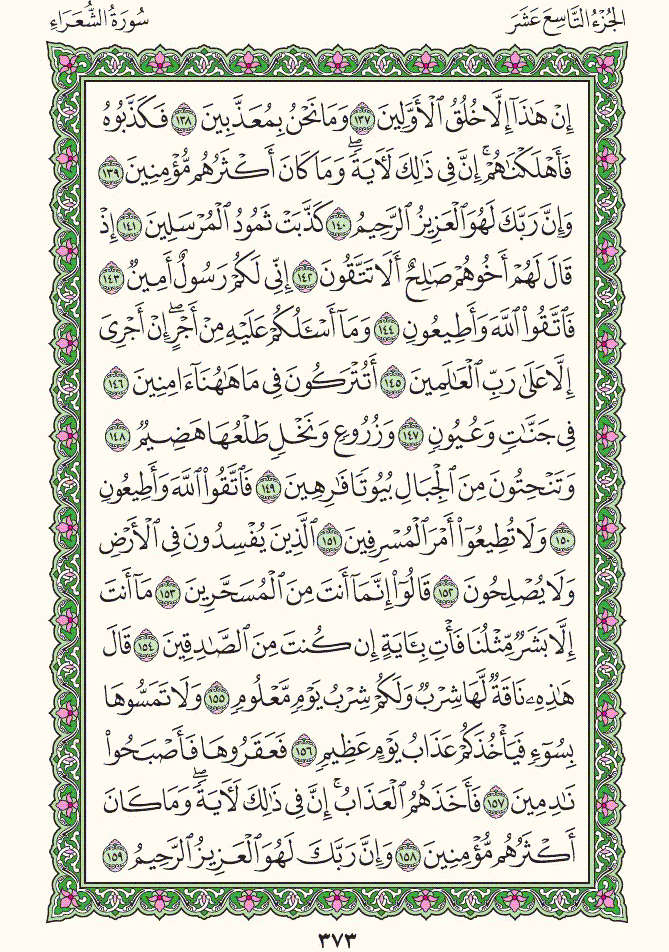 الجُزْءُ التَّاسِعَ عَشَرَ
سُورَةُ الشُّعَرَاءِ
إِنْ هَٰذَآ إِلَّا خُلُقُ ٱلْأَوَّلِينَ ١٣٧ وَمَا نَحْنُ بِمُعَذَّبِينَ ١٣٨ فَكَذَّبُوهُ
فَأَهْلَكْنَٰهُمْ ۚ إِنَّ فِى ذَٰلِكَ لَءَايَةً ۖ وَمَا كَانَ أَكْثَرُهُم مُّؤْمِنِينَ ١٣٩
وَإِنَّ رَبَّكَ لَهُوَ ٱلْعَزِيزُ ٱلرَّحِيمُ ١٤٠ كَذَّبَتْ ثَمُودُ ٱلْمُرْسَلِينَ ١٤١ إِذْ
قَالَ لَهُمْ أَخُوهُمْ صَٰلِحٌ أَلَا تَتَّقُونَ ١٤٢ إِنِّى لَكُمْ رَسُولٌ أَمِينٌ ١٤٣
فَٱتَّقُوا۟ ٱللَّهَ وَأَطِيعُونِ ١٤٤ وَمَآ أَسْـَٔلُكُمْ عَلَيْهِ مِنْ أَجْرٍ ۖ إِنْ أَجْرِىَ
إِلَّا عَلَىٰ رَبِّ ٱلْعَٰلَمِينَ ١٤٥ أَتُتْرَكُونَ فِى مَا هَٰهُنَآ ءَامِنِينَ ١٤٦
فِى جَنَّٰتٍ وَعُيُونٍ ١٤٧ وَزُرُوعٍ وَنَخْلٍ طَلْعُهَا هَضِيمٌ ١٤٨
وَتَنْحِتُونَ مِنَ ٱلْجِبَالِ بُيُوتًا فَٰرِهِينَ ١٤٩ فَٱتَّقُوا۟ ٱللَّهَ وَأَطِيعُونِ
١٥٠ وَلَا تُطِيعُوٓا۟ أَمْرَ ٱلْمُسْرِفِينَ ١٥١ ٱلَّذِينَ يُفْسِدُونَ فِى ٱلْأَرْضِ
وَلَا يُصْلِحُونَ ١٥٢ قَالُوٓا۟ إِنَّمَآ أَنتَ مِنَ ٱلْمُسَحَّرِينَ ١٥٣ مَآ أَنتَ
إِلَّا بَشَرٌ مِّثْلُنَا فَأْتِ بِـَٔايَةٍ إِن كُنتَ مِنَ ٱلصَّٰدِقِينَ ١٥٤ قَالَ
هَٰذِهِۦ نَاقَةٌ لَّهَا شِرْبٌ وَلَكُمْ شِرْبُ يَوْمٍ مَّعْلُومٍ ١٥٥ وَلَا تَمَسُّوهَا
بِسُوٓءٍ فَيَأْخُذَكُمْ عَذَابُ يَوْمٍ عَظِيمٍ ١٥٦ فَعَقَرُوهَا فَأَصْبَحُوا۟
نَٰدِمِينَ ١٥٧ فَأَخَذَهُمُ ٱلْعَذَابُ ۗ إِنَّ فِى ذَٰلِكَ لَءَايَةً ۖ وَمَا كَانَ
أَكْثَرُهُم مُّؤْمِنِينَ ١٥٨ وَإِنَّ رَبَّكَ لَهُوَ ٱلْعَزِيزُ ٱلرَّحِيمُ ١٥٩
٣٧٣